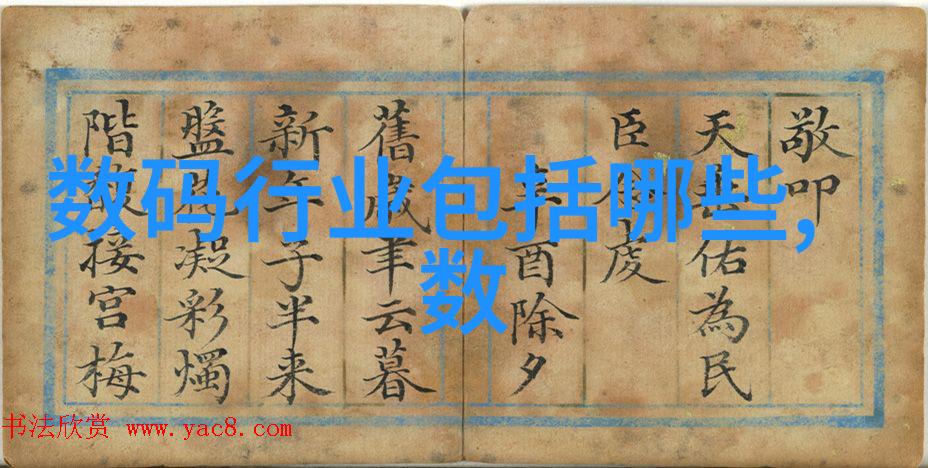 数码行业包括哪些,
数
敬叩
天佑為民
臣虔
辛酉除夕
舊歲聿云暮
新年子半来
盤花凝彩燭
階接宮梅
书法欣赏 www.yac8.com